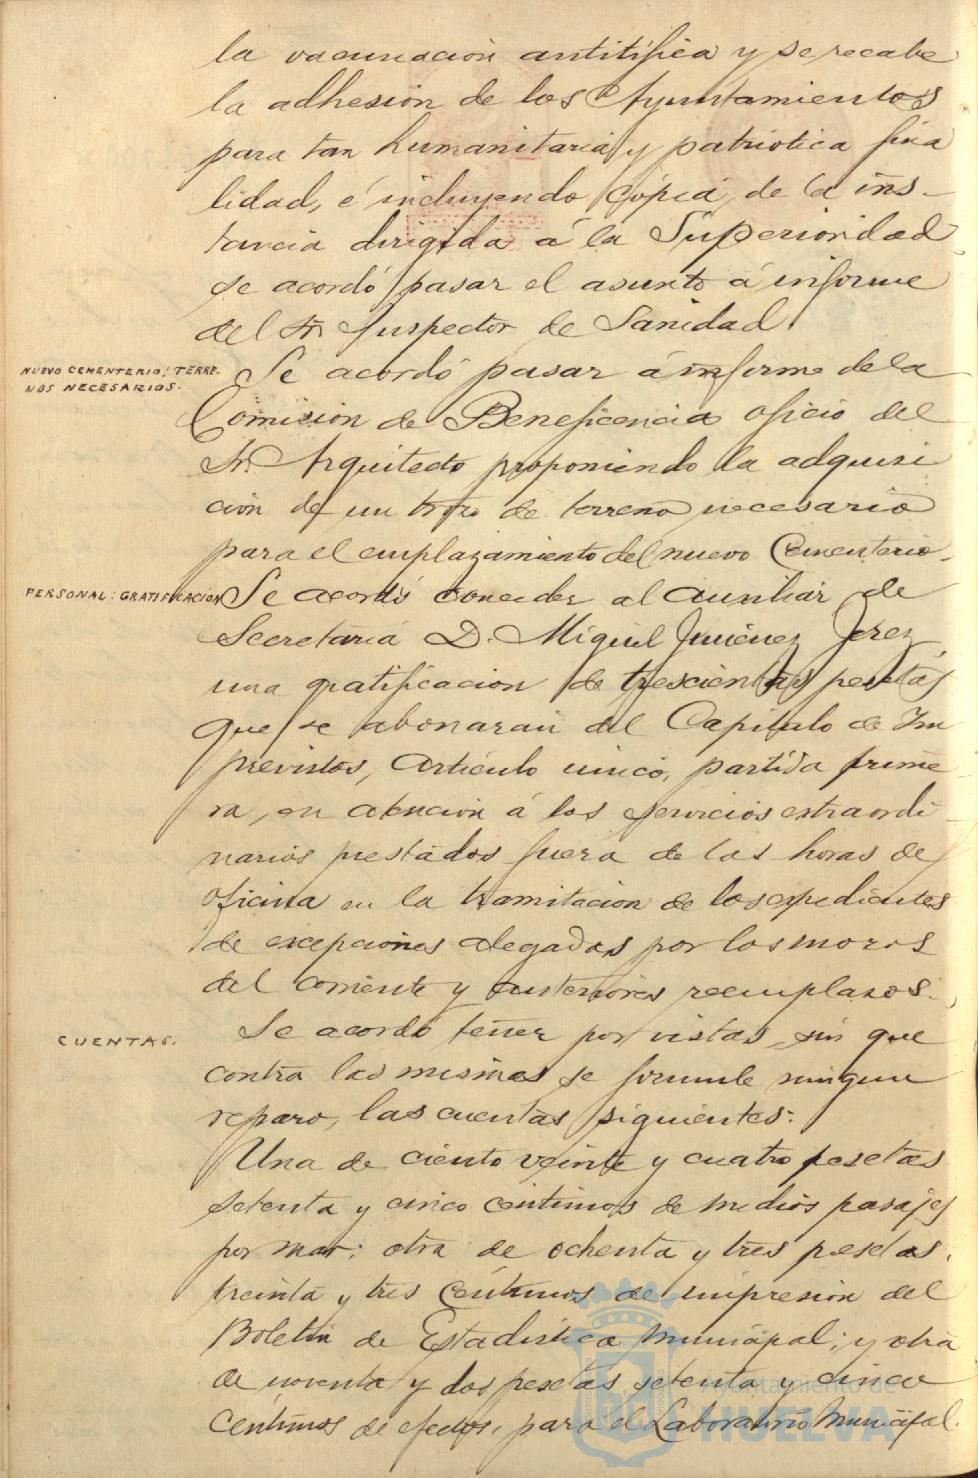 la vacunación antitífica y se recabe
la adhesión de los Ayuntamientos
para tan humanitaria y patriótica fina
lidad, é incluyendo cópia de la ins-
tancia dirigida á la Superioridad,
se acordó pasar el asunto á informe
del Sr. Inspector de Sanidad.
NUEVO CEMENTERIO: TERRE-
NOS NECESARIOS.
Se acordó pasar á informe de la
Comisión de Beneficencia oficio del
Sr. Arquitecto proponiendo la adquisi
ción de un trozo de terreno necesario
para el emplazamiento del nuevo Cementerio.
PERSONAL: GRATIFICACIÓN
Se acordó conceder al auxiliar de
Secretaría D. Miguel Jiménez Jerez,
una gratificación de trescientas pesetas
que se abonarán del Capítulo de Im
previstos, artículo único, partida prime
ra, en atención á los servicios extraordi
narios prestados fuera de las horas de
oficina en la tramitación de los expedientes
de excepciones alegadas por los mozos
del corriente y anteriores reemplazos.
CUENTAS.
Se acordó tener por vistas, sin que
contra las mismas se formule ningun
reparo, las cuentas siguientes:
Una de ciento veinte y cuatro pesetas
setenta y cinco céntimos de medios pasajes
por mar; otra de ochenta y tres pesetas,
treinta y tres céntimos de impresión del
Boletín de Estadística municipal; y otra
de noventa y dos pesetas setenta y cinco
céntimos de efectos para el Laboratorio Municipal.
Ayuntamiento de
HUELVA